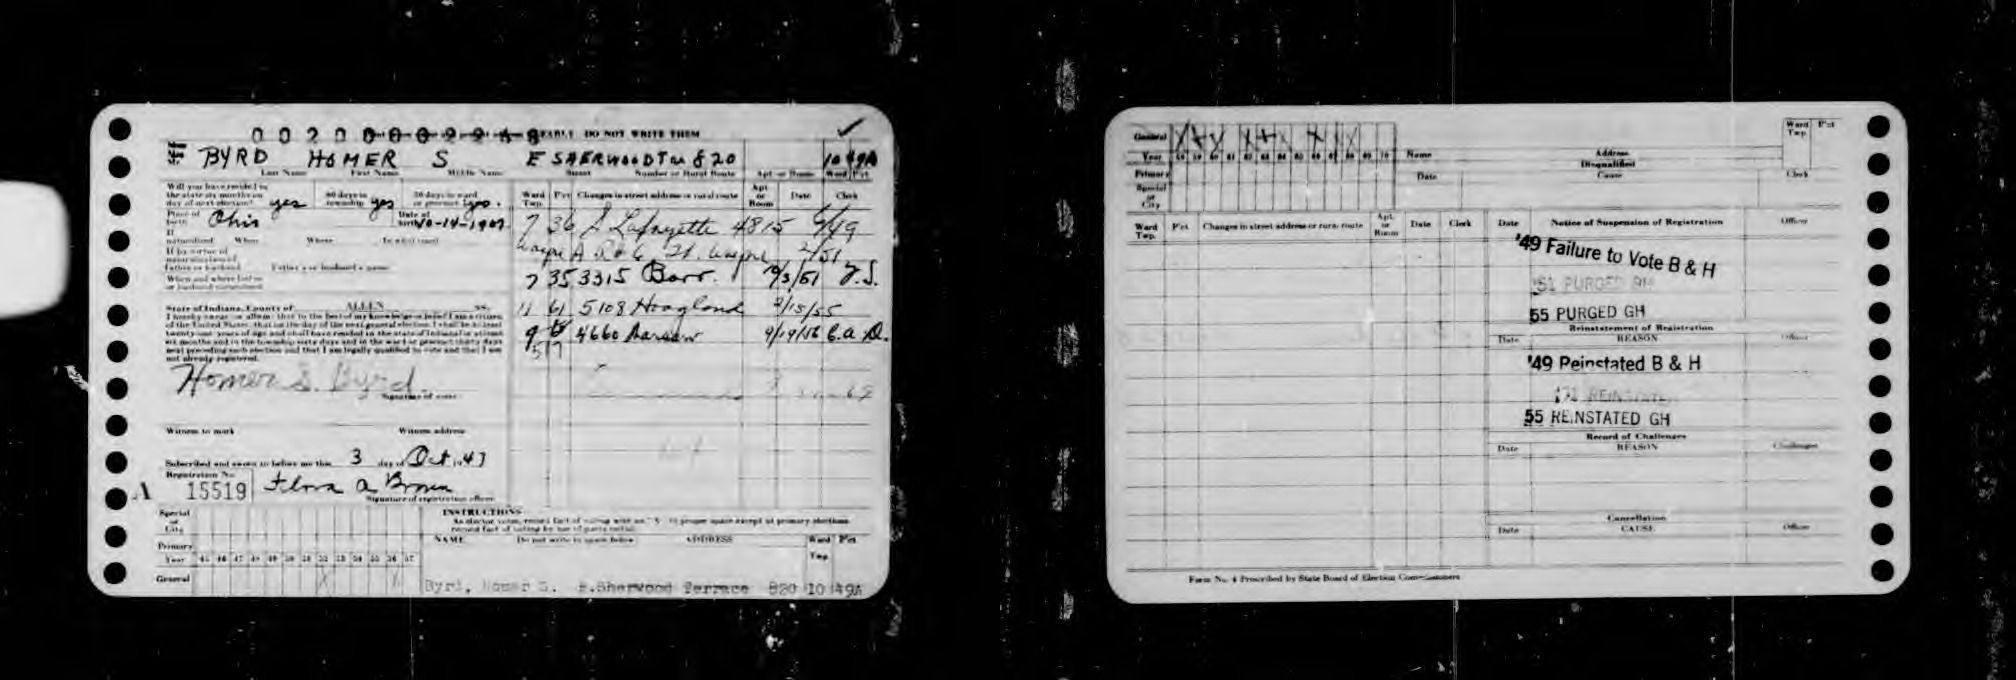 CLEARLY DO NOT WRITE THEM
BYRD HOMER S E SHERWOOD Ter 820 10 49A
Last Name First Name Middle Name Street Number or Rural Route Apt. or Room Ward Pct
Will you have resided in the state six months on day of next election? yes 60 days in township yes 30 days in ward or precinct yes.
Place of birth Ohio Date of birth 10-14-1907
If naturalized When Where
If by virtue of naturalization of Father or husband Father's or husband's name
When and where father or husband naturalized
Ward Twp. P'ct Changes in street address or rural route Apt. or Room Date Clerk
7 36 S Lafayette 4815 6/49
Wayne A R#6 Ft. Wayne 2/51
7 35 3315 Barr. 10/3/51 J.S.
11 61 5108 Hoagland 2/15/55
9 4660 9/19/56 C.a.D.
517
State of Indiana, County of ALLEN ss.
I hereby swear or affirm that to the best of my knowledge or belief I am a citizen
of the United States, that on the day of the next general election I shall be at least
twenty-one years of age and shall have resided in the state of Indiana at least
six months and in the township sixty days and in the ward or precinct thirty days
next preceding such election and that I am legally qualified to vote and that I am
not already registered.
Homer S. Byrd.
Signature of voter
Witness to mark Witness address
Subscribed and sworn to before me this 3 day of Oct 1947
Registration No.
A 15519 Flora A Brown
Signature of registration officer
INSTRUCTIONS
As elector votes, record fact of voting with an "X" in proper space except at primary elections
record fact of voting by use of party initial.
Special or City
Primary
Year 45 46 47 48 49 50 51 52 53 54 55 56 57
General X X
NAME Do not write in space below ADDRESS Ward Twp. P'ct
Byrd, Homer S. E.Sherwood Terrace 820 10 49A
General
Year 58 59 60 61 62 63 64 65 66 67 68 69 70
Primary
Special or City
Name Address Ward Twp. P'ct
Disqualified
Date Cause Clerk
Ward Twp. P'ct Changes in street address or rural route Apt. or Room Date Clerk
Date Notice of Suspension of Registration Officer
'49 Failure to Vote B & H
'51 PURGED
55 PURGED GH
Reinstatement of Registration
Date REASON Officer
'49 Reinstated B & H
REINSTATED
55 REINSTATED GH
Record of Challenges
Date REASON Challenger
Cancellation
Date CAUSE Officer
Form No. 4 Prescribed by State Board of Election Commissioners